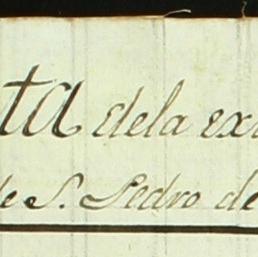 ta dela ex
de S. Pedro de